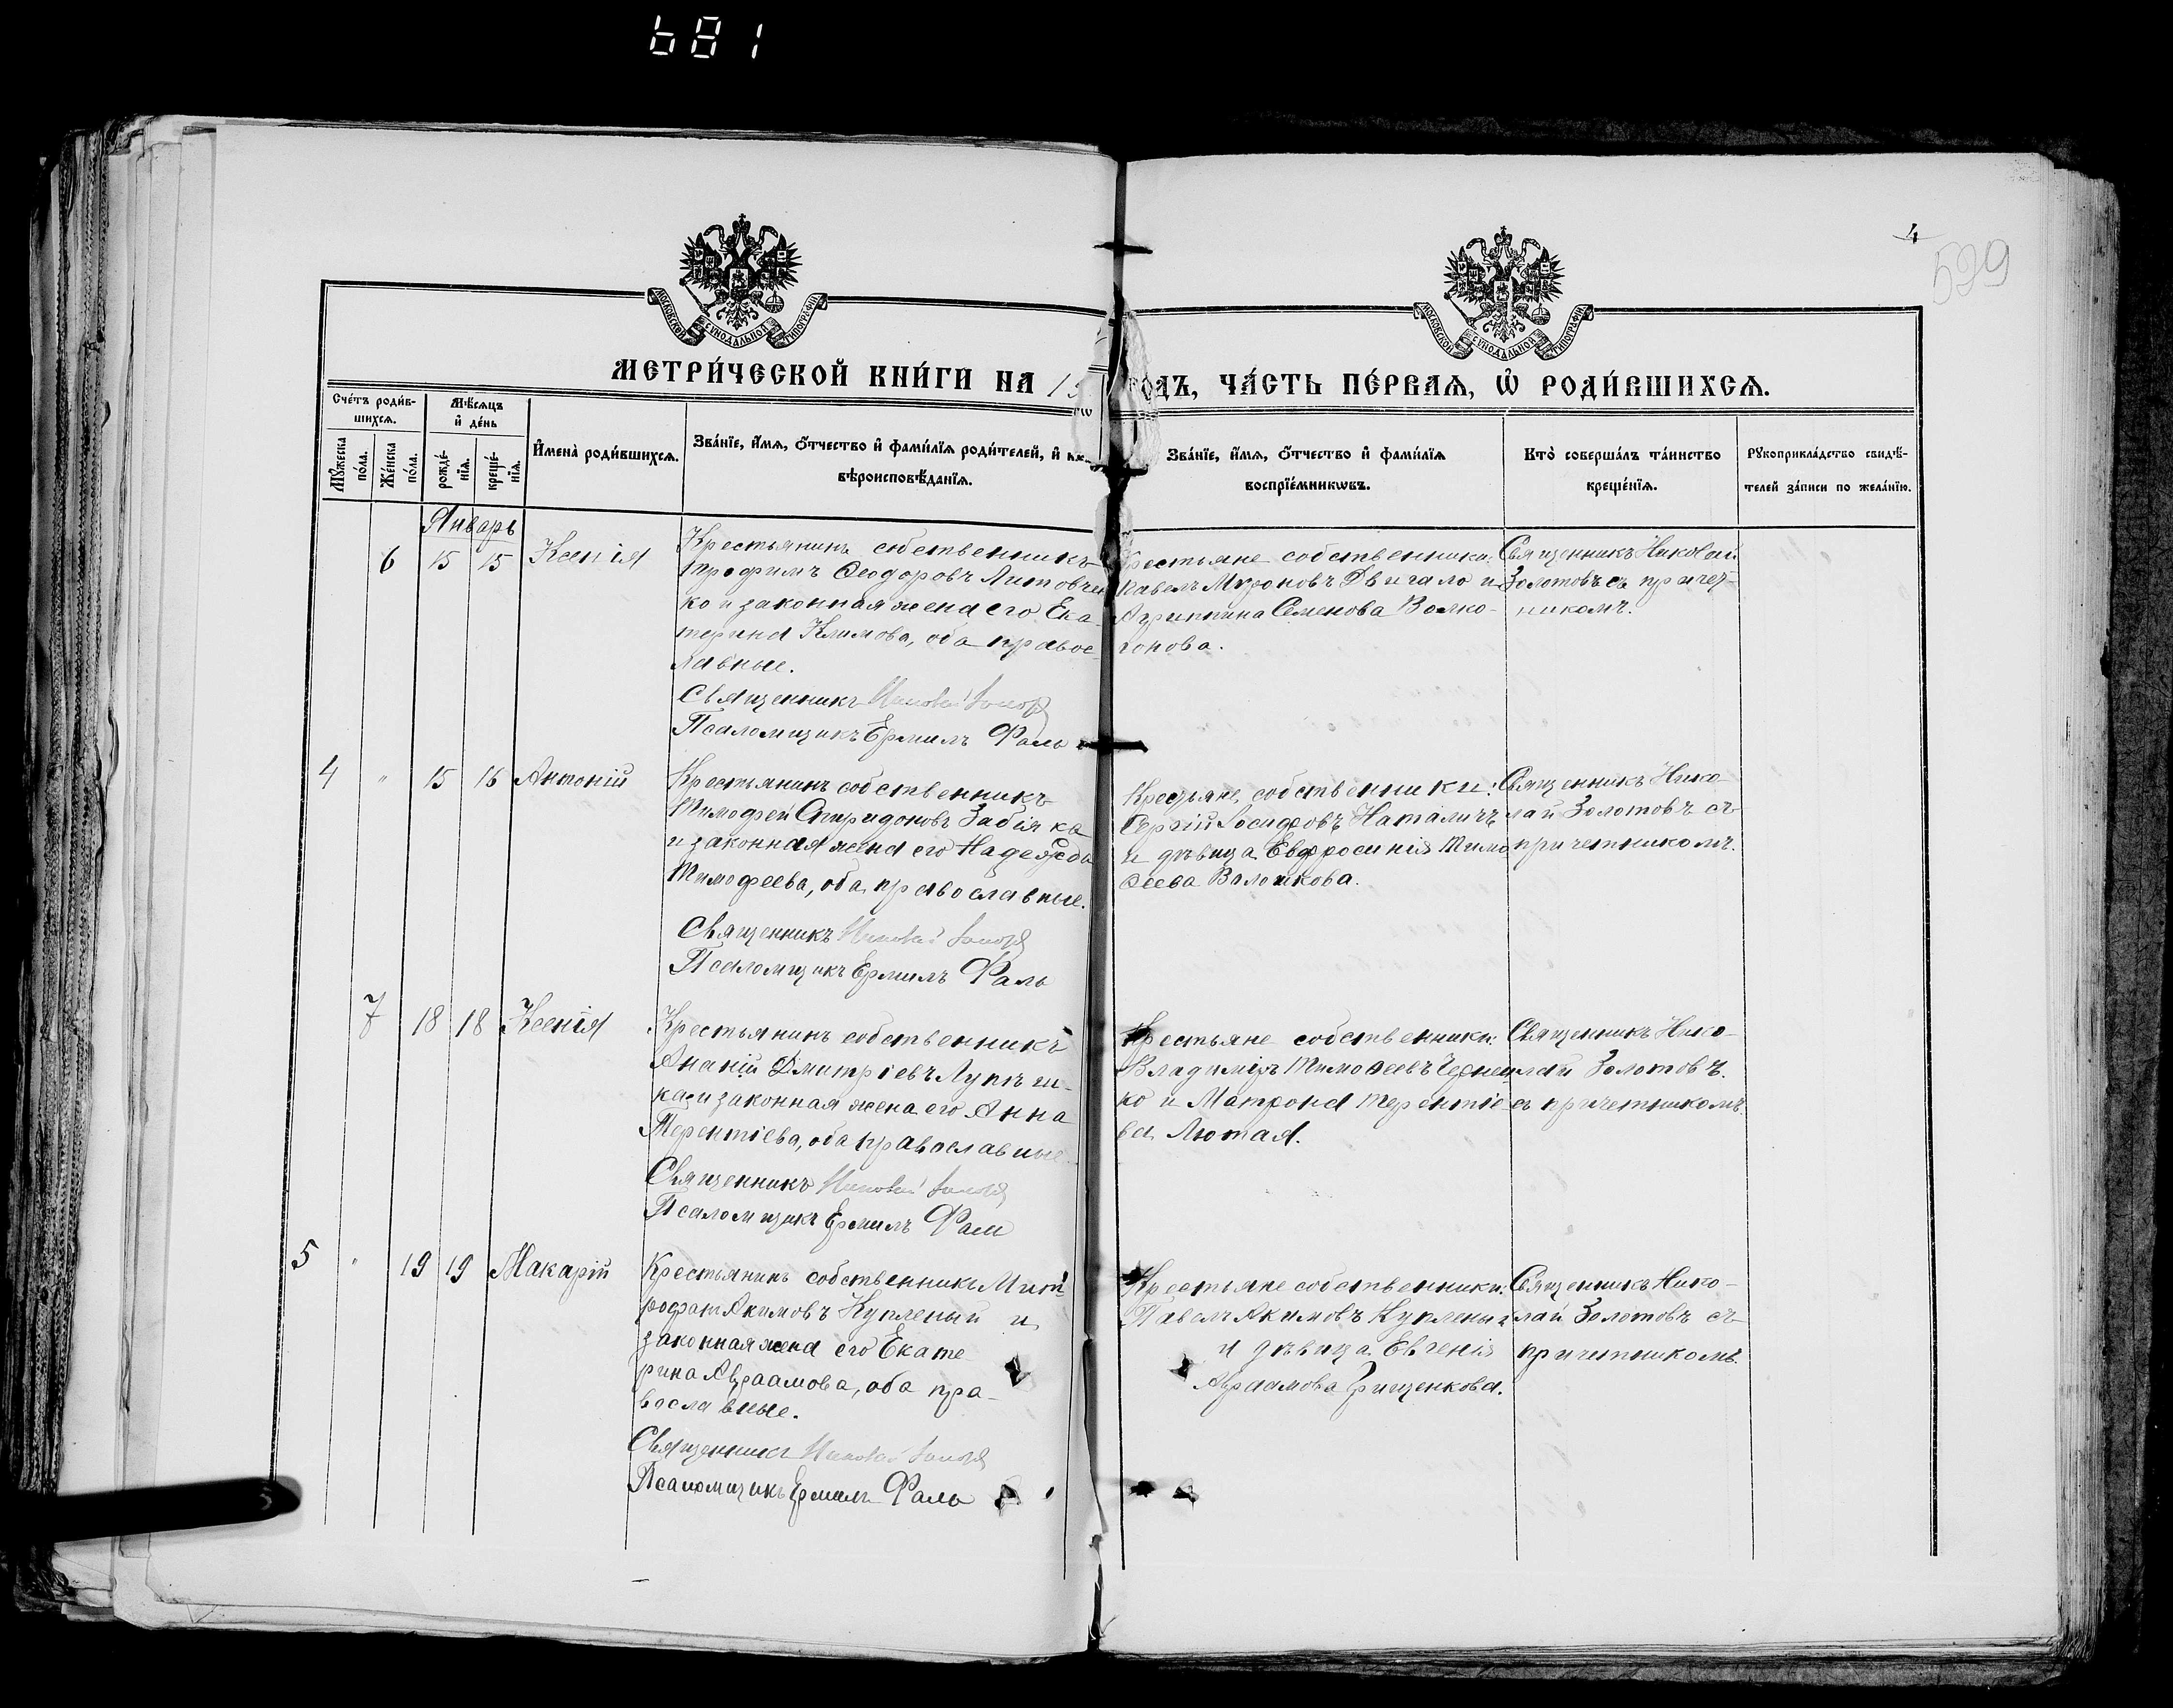 681
4
599
МОСКОВСКОЙ СѴНОДАЛЬНОЙ ТИПОГРАФІИ
МОСКОВСКОЙ СѴНОДАЛЬНОЙ ТИПОГРАФІИ
МЕТРИ́ЧЕСКОЙ КНИ́ГИ НА
ГО́ДЪ, ЧА́СТЬ ПЕ́РВАѦ, Ѡ҆ РОДИ́ВШИХСѦ.
Сче́тъ роди́в-
шихсѧ.
Мꙋ́жеска по́ла.
Же́нска по́ла.
Мѣ́сѧцъ
и҆ де́нь
рожде́-
нїѧ.
креще́-
нїѧ.
И҆мена̀ роди́вшихсѧ.
Зва́нїе, и҆́мѧ, ѻ҆́тчество и҆ фамѝлїѧ роди́телей, и҆ их
вѣроисповѣ́данїѧ.
Зва́нїе, и҆́мѧ, ѻ҆́тчество и҆ фами́лїѧ
воспрїе́мникѡвъ.
Кто̀ соверша́лъ та́инство
креще́нїѧ.
Рꙋкоприкла́дство свидѣ́-
телей за́писи по жела́нїю.
Январь
6 15 15 Ксенія
Крестьянинъ собственникъ
Трофимъ Ѳеодоровъ Литовчен
ко и законная жена его Ека-
терина Климова, оба правос-
лавные.
Священникъ Николай Золотов
Псаломщикъ Ермилъ Фаль
Крестьяне собственники:
Павелъ Мироновъ Двигало и
Агриппина Семенова Волко-
гонова.
Священникъ Николай
Золотовъ съ причет-
никомъ.
4 " 15 16 Антоній
Крестьянинъ собственникъ
Тимофей Спиридоновъ Забіяка
и законная жена его Надежда
Тимофеева, оба православные.
Священникъ Николай Золотов
Псаломщикъ Ермилъ Фаль
Крестьяне собственники:
Сергій Іосифовъ Наталичъ
и дѣвица Евфросинія Тимо
ѳеева Волошкова.
Священникъ Нико-
лай Золотовъ съ
причетникомъ.
7 18 18 Ксенія
Крестьянинъ собственникъ
Ананій Дмитріевъ
и законная жена его Анна
Терентіева, оба православные.
Священникъ Николай Золотов
Псаломщикъ Ермилъ Фаль
Крестьяне собственники:
Владиміръ Тимоѳеевъ
ко и Матрона Терентіе-
ва Лютая.
Священникъ Нико-
лай Золотовъ
съ причетникомъ.
5 " 19 19 Макарій
Крестьянинъ собственникъ Мит-
рофанъ Акимовъ Купленый и
законная жена его Екате
рина Авраамова, оба пра-
вославные.
Священникъ Николай Золотов
Псаломщикъ Ермилъ Фаль
Крестьяне собственники:
Павелъ Акимовъ Купленый
и дѣвица Евгенія
Авраамова Грищенкова.
Священникъ Нико-
лай Золотовъ съ
причетникомъ.